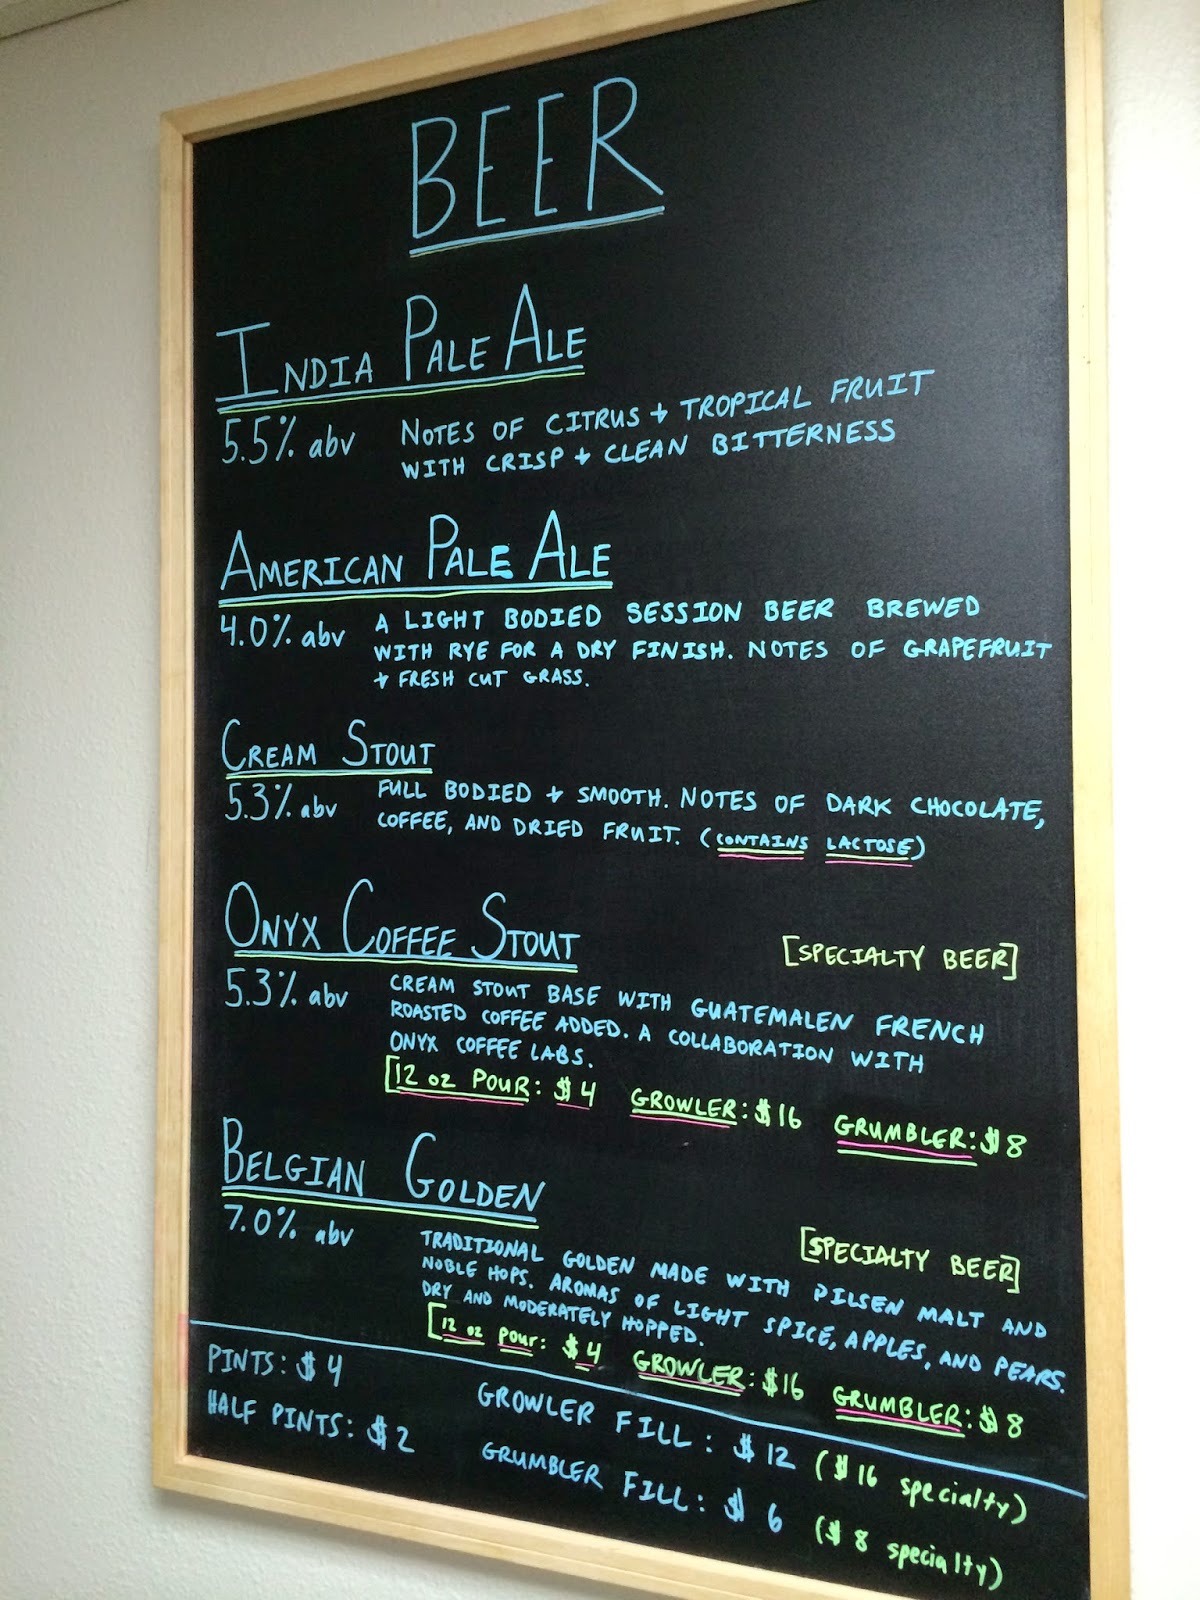 BEER
INDIA PALE ALE
5.5% abv
NOTES OF CITRUS + TROPICAL FRUIT
WITH CRISP + CLEAN BITTERNESS
AMERICAN PALE ALE
4.0% abv
A LIGHT BODIED SESSION BEER BREWED
WITH RYE FOR A DRY FINISH. NOTES OF GRAPEFRUIT
+ FRESH CUT GRASS.
CREAM STOUT
5.3% abv
FULL BODIED + SMOOTH. NOTES OF DARK CHOCOLATE,
COFFEE, AND DRIED FRUIT. (CONTAINS LACTOSE)
ONYX COFFEE STOUT
[SPECIALTY BEER]
5.3% abv
CREAM STOUT BASE WITH GUATEMALEN FRENCH
ROASTED COFFEE ADDED. A COLLABORATION WITH
ONYX COFFEE LABS.
[12 oz POUR: $4 GROWLER: $16 GRUMBLER: $8
BELGIAN GOLDEN
[SPECIALTY BEER]
7.0% abv
TRADITIONAL GOLDEN MADE WITH PILSEN MALT AND
NOBLE HOPS. AROMAS OF LIGHT SPICE, APPLES, AND PEARS.
DRY AND MODERATELY HOPPED.
[12 oz POUR: $4 GROWLER: $16 GRUMBLER: $8
PINTS: $4
HALF PINTS: $2
GROWLER FILL: $12 ($16 specialty)
GRUMBLER FILL: $6 ($8 specialty)